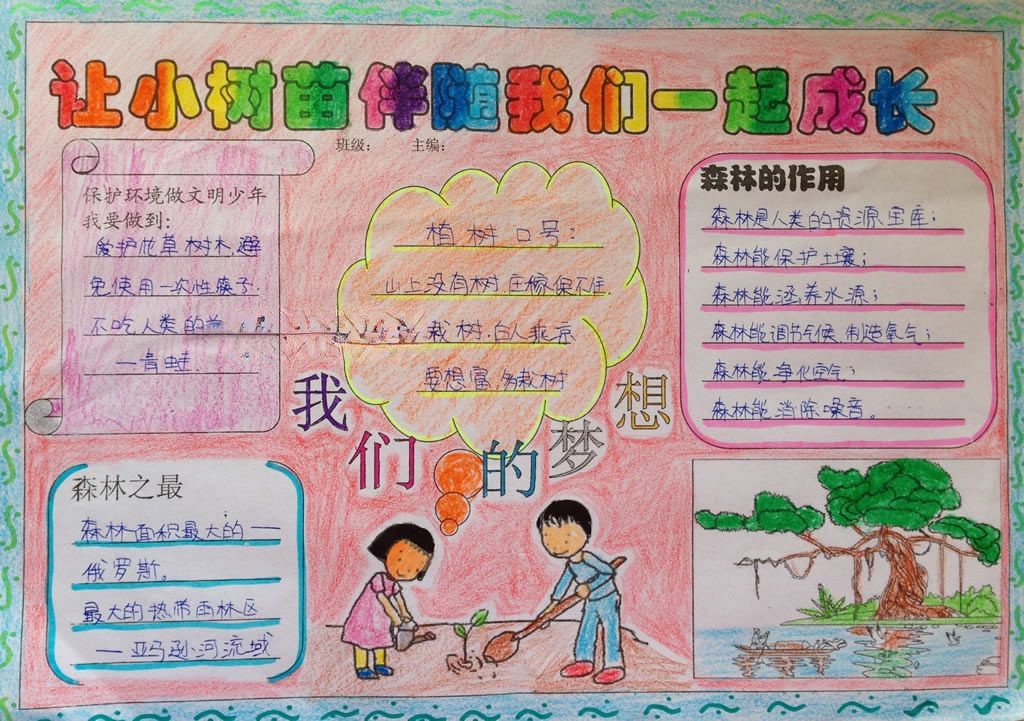 让小树苗伴随我们一起成长
班级： 主编：
保护环境做文明少年
我要做到：
爱护花草树木,避
免使用一次性筷子.
不吃人类的
—青蛙.
植树口号：
山上没有树,庄稼保不住
栽树,百人乘凉
要想富,多栽树
森林的作用
森林是人类的资源宝库；
森林能保护土壤；
森林能涵养水源；
森林能调节气候,制造氧气；
森林能净化空气；
森林能消除噪音。
我们的梦想
森林之最
森林面积最大的—
俄罗斯。
最大的热带雨林区
—亚马逊河流域